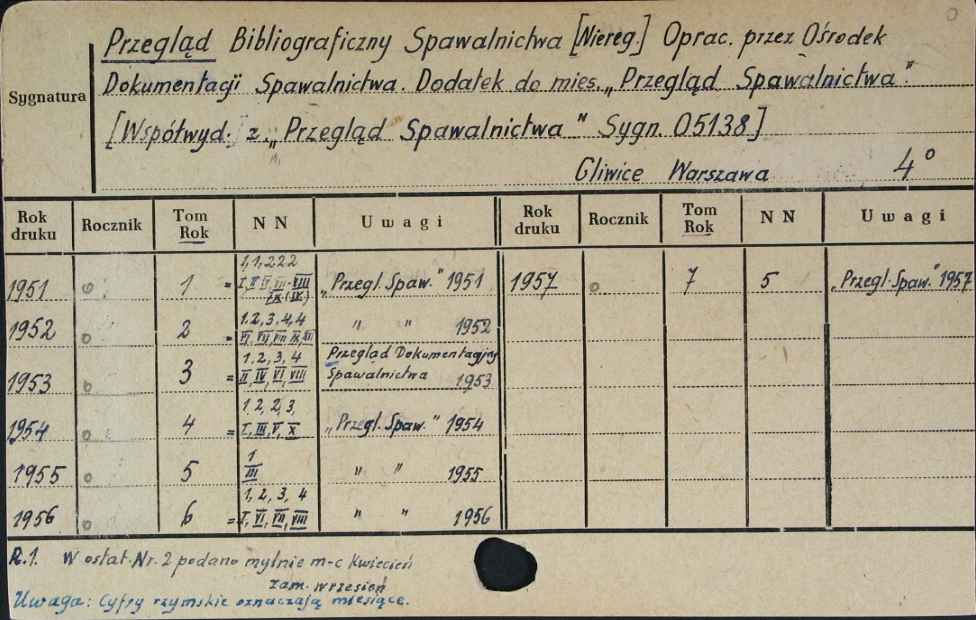 Przegląd Bibliograficzny Spawalnictwa [Niereg.] Oprac. przez Ośrodek
Sygnatura
Dokumentacji Spawalnictwa. Dodatek do mies. „Przegląd Spawalnictwa".
[Współwyd. z „Przegląd Spawalnictwa" Sygn. 05138]
Gliwice Warszawa 4°
Rok druku Rocznik Tom Rok N N Uwagi Rok druku Rocznik Tom Rok N N Uwagi
1, 1, 2 2 2
1951 o 1 = „Przegl. Spaw." 1951 1957 o 7 5 „Przegl. Spaw." 1957
1. 2, 3, 4, 4
1952 o 2 = " " 1952
1. 2, 3, 4 Przegląd Dokumentacyjny
1953 o 3 = II, IV, VI, VIII Spawalnictwa 1953
1, 2, 2, 3,
1954 o 4 = I, III, V, X „Przegl. Spaw." 1954
1
1955 o 5 III " " 1955
1, 2, 3, 4
1956 o 6 = I, VI, VII, VIII " " 1956
R.1. W ostat. Nr. 2 podano mylnie m-c Kwiecień
zam. wrzesień
Uwaga: Cyfry rzymskie oznaczają miesiące.